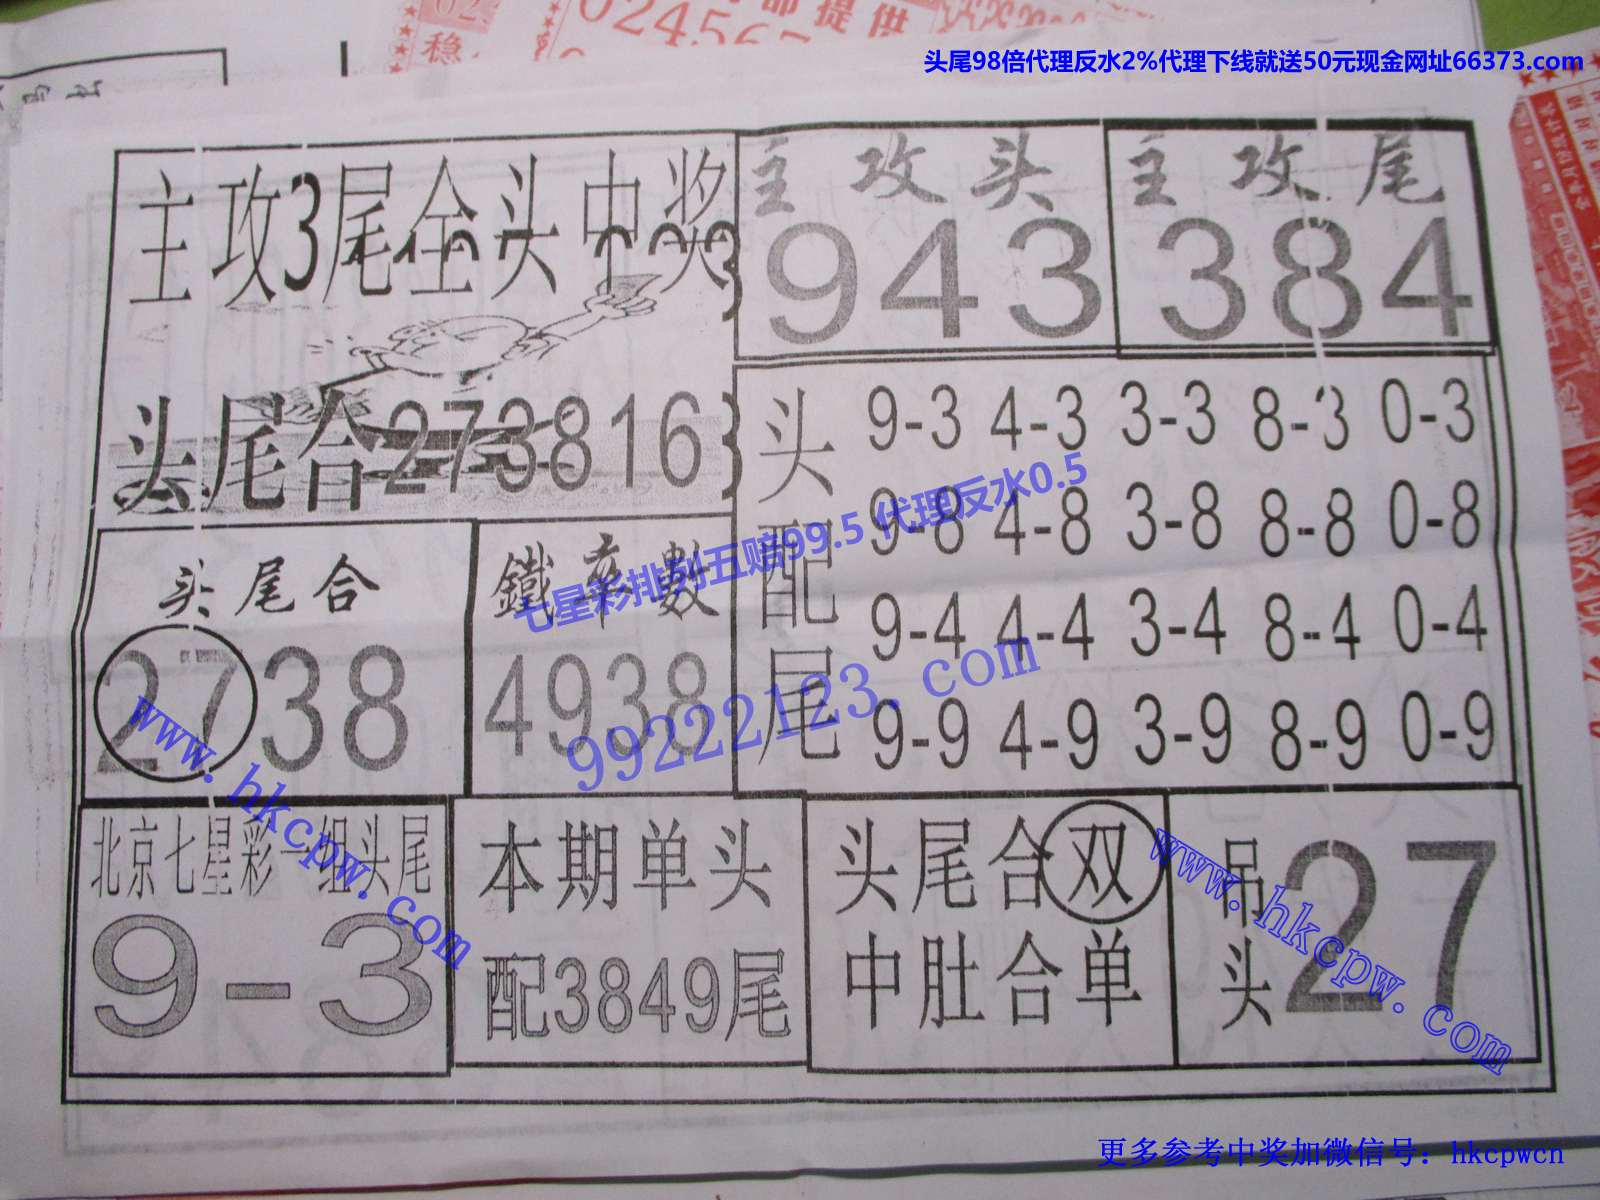 提供
稳
头尾98倍代理反水2%代理下线就送50元现金网址66373.com
主攻3尾全头中奖
主攻头
943
主攻尾
384
头尾合273816
头配尾
9-3 4-3 3-3 8-3 0-3
9-8 4-8 3-8 8-8 0-8
9-4 4-4 3-4 8-4 0-4
9-9 4-9 3-9 8-9 0-9
七星彩排列五赔99.5 代理反水0.5
头尾合
2738
鐵率數
4938
99222123.com
www.hkcpw.com
北京七星彩一组头尾
9-3
本期单头
配3849尾
头尾合双
中肚合单
吊头
27
www.hkcpw.com
更多参考中奖加微信号：hkcpwcn